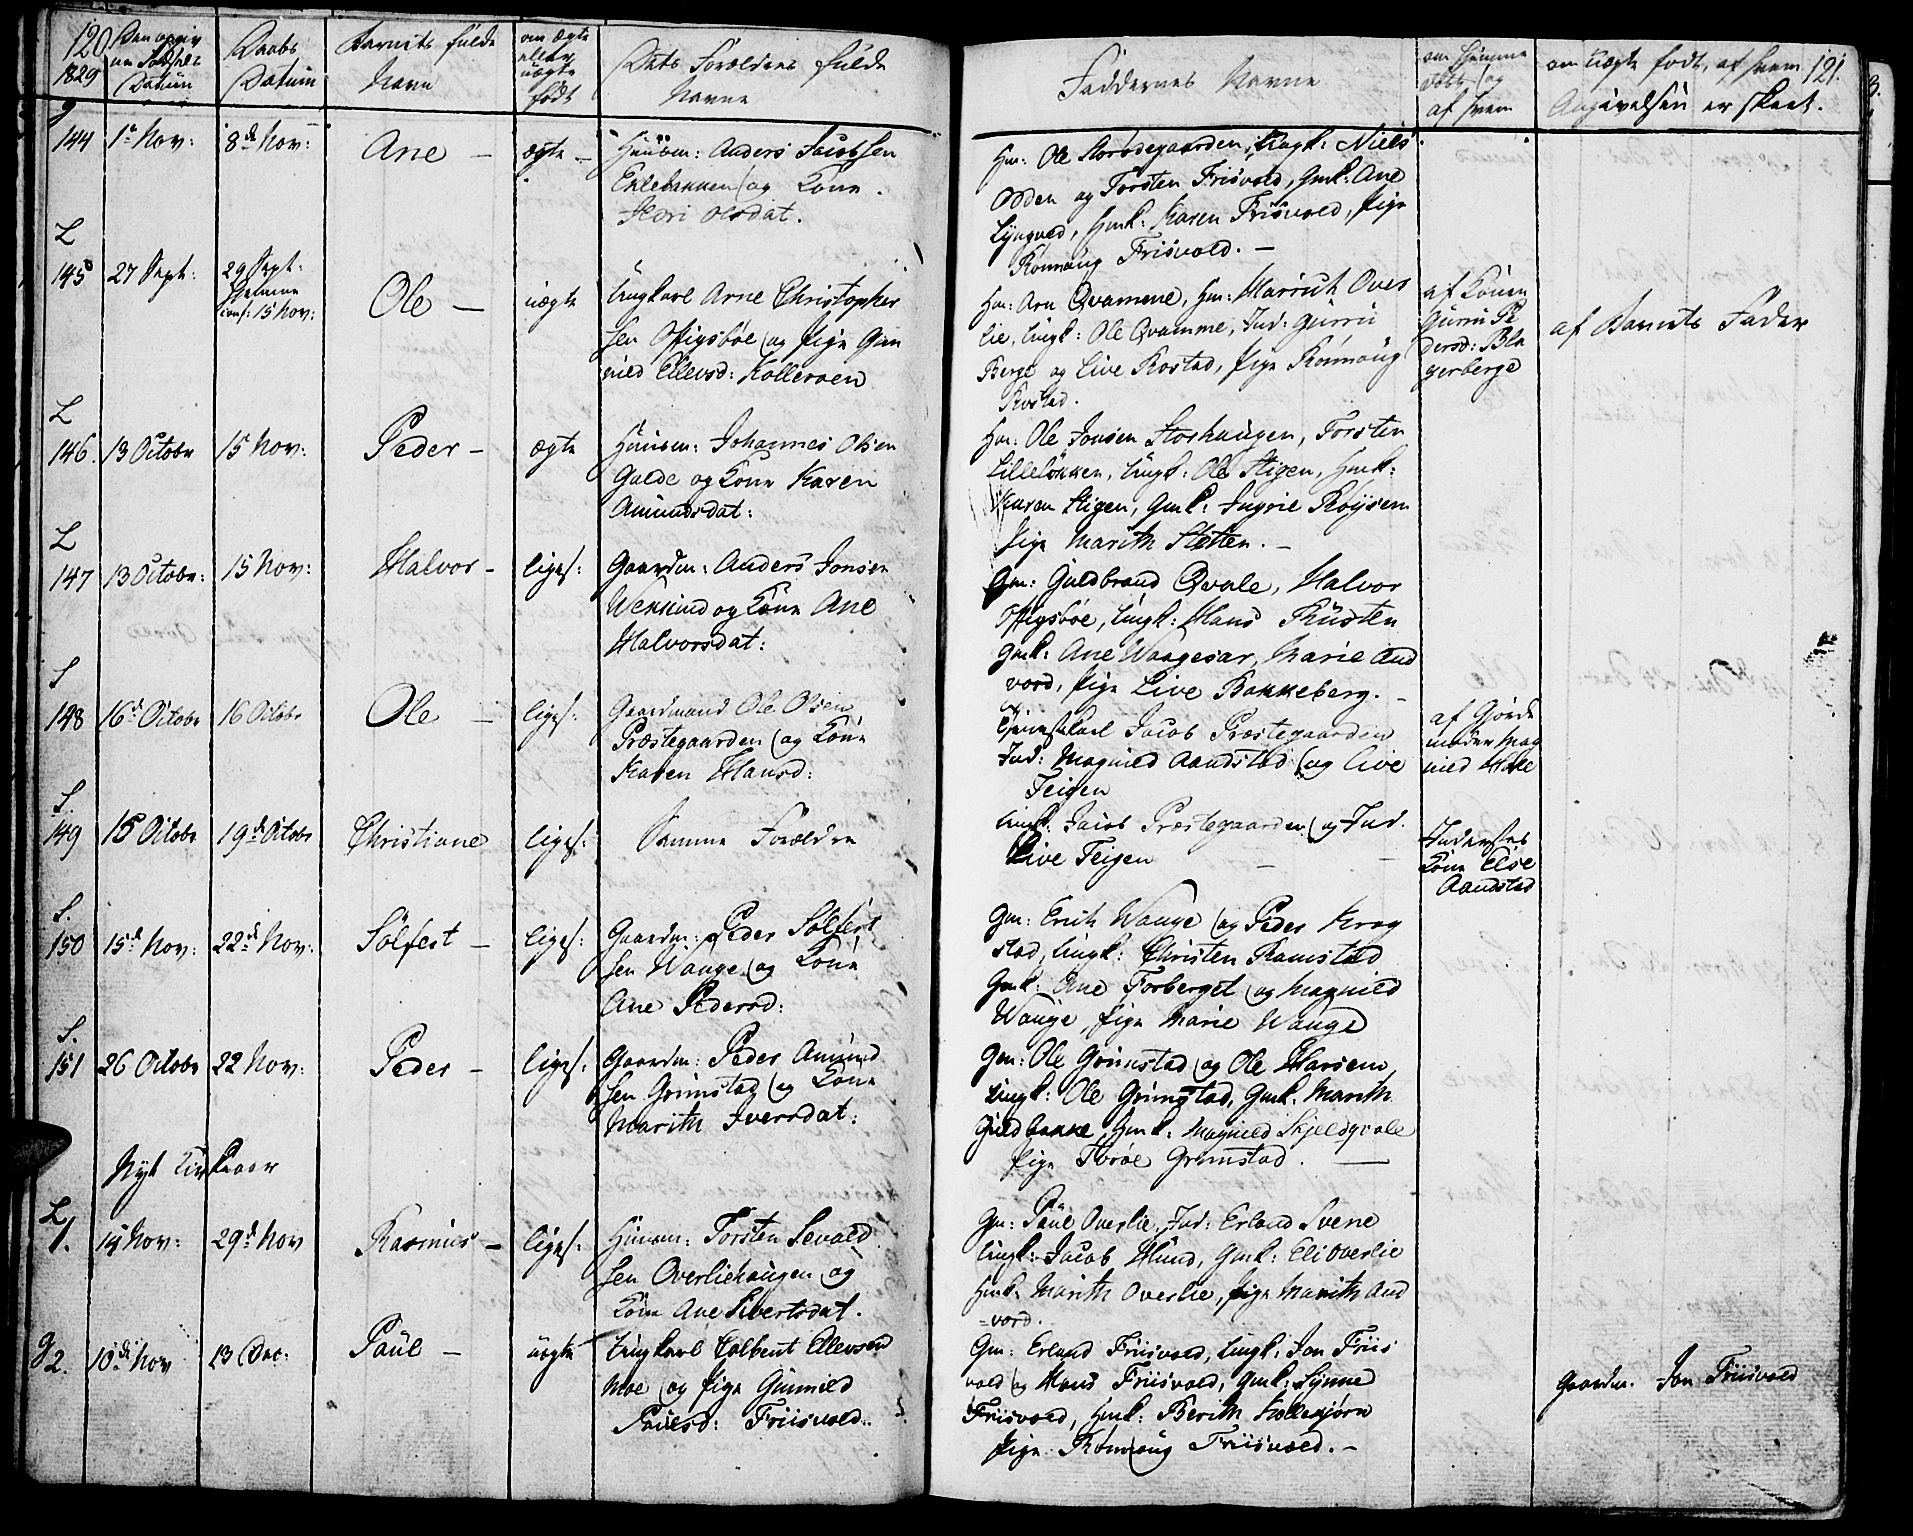 120
1829
Daabs
Datum
Barnets fulde
Navn
om ægte
eller
uægte
født
Dets Forældres fulde
Navne
Faddernes Navne
om hjemme
døbt og
af hvem
om uægte født, af hvem
Angivelsen er skeet.
121.
g
144
1e Nov:
8de Nov:
Ane –
ægte –
Huusm: Anders Jacobsen
og Kone
Olsdat.
Hm: Ole Storødegaarden, Niels
Odden og Torsten Friisvold, Gmk: Ane
Lyngved, Hmk: Karen Friisvold, Pige
Rønnaug Friisvold. –
L
145
27 Sept:
29 Sept:
hjemme
conf: 15 Nov:
Ole –
uægte
Ungkarl Arne Christopher
sen Offigsbøe og Pige Gun
nild Ellevsd: Kolleroen
Hm: Arn Qvamme, Hm: Marrith Over
lie, Ungk: Ole Qvamme, Ind: Gurru
Berge og Live Rostad, Pige Rønnaug
Rostad.
af Konen
Gurru Pe
dersd: Bla
gerberge
af Barnets Fader
L
146.
13 Octobr
15 Nov:
Peder –
ægte
Huusm: Johannes Olsen
Galde og Kone Karen
Amundsdat:
Hm: Ole Jonsen Storhaugen, Torsten
Lilleløkken, Ungk: Ole Stigen, Hmk:
Karen Stigen, Gmk: Ingrie Røysem
Pige Marith Sletten. –
L
147
13 Octobr:
15 Nov:
Halvor –
liges:
Gaardm: Anders Jonsen
og Kone Ane
Halvorsdat:
Gm: Guldbrand Qvale, Halvor
Offigsbøe, Ungk: Hans Rusten
Gmk: Ane Waagesar, Marie And
vord, Pige Live Bakkeberg. –
S
148
16de Octobr
16 Octobr
Ole –
liges:
Gaardmand Ole Olsen
Præstegaarden og Kone
Karen Hansd:
Tienestekarl Jacob Præstegaarden
Ind: Magnild Aandstad og Live
Teigen
af Gjorde
moder Mag
nild Hole
S.
149
15 Octobr
19de Octobr
Christiane
liges:
Samme Forældre
Ungk: Jacob Præstegaarden og Ind.
Live Teigen – –
Inderstes
Kone Else
Aandstad
S.
150
15de Nov:
22de Nov:
Sølfest –
liges:
Gaardm: Peder Sølfest
sen Wange og Kone
Ane Pedersd:
Gm: Erich Wange og Peder Krog
stad, Ungk: Christen Ramstad
Gmk: Ane Forberget og Magnild
Wange, Pige Marie Wange
S.
151
26 Octobr
22 Nov:
Peder –
liges:
Gaardm: Peder Amund
sen Grimstad og Kone
Marith Iversdat:
Gm: Ole Grimstad og Ole Harsem
Ungk: Ole Grimstad, Gmk. Marith
Guldbakke, Hmk: Magnild Skjeldqvale
Pige Thrøe Grimstad. –
Nyt Kirkeaar
L
1.
14 Nov:
29de Nov
Rasmus –
liges:
Huusm: Torsten Sevald
sen Overliehaugen og
Kone Ane Sivertsdat.
Gm: Paul Overlie, Ind: Erland Svene
Ungk: Jacob Hund, Gmk: Eli Overlie
Hmk: Marith Overlie, Pige Marith And
-vord.
g
2.
10de Nov
13 Dec:
Paul –
uægte
Ungkarl Colbent Ellevsen
Moe og Pige Gunnild
Paulsd: Friisvold.
Gm: Erland Friisvold, Ungk: Jon Friis
vold og Hans Friisvold, Gmk: Synne
Friisvold, Hmk: Berith Kollekjørn
Pige Rønnaug Friisvold. –
Gaardm. Jon Friisvold